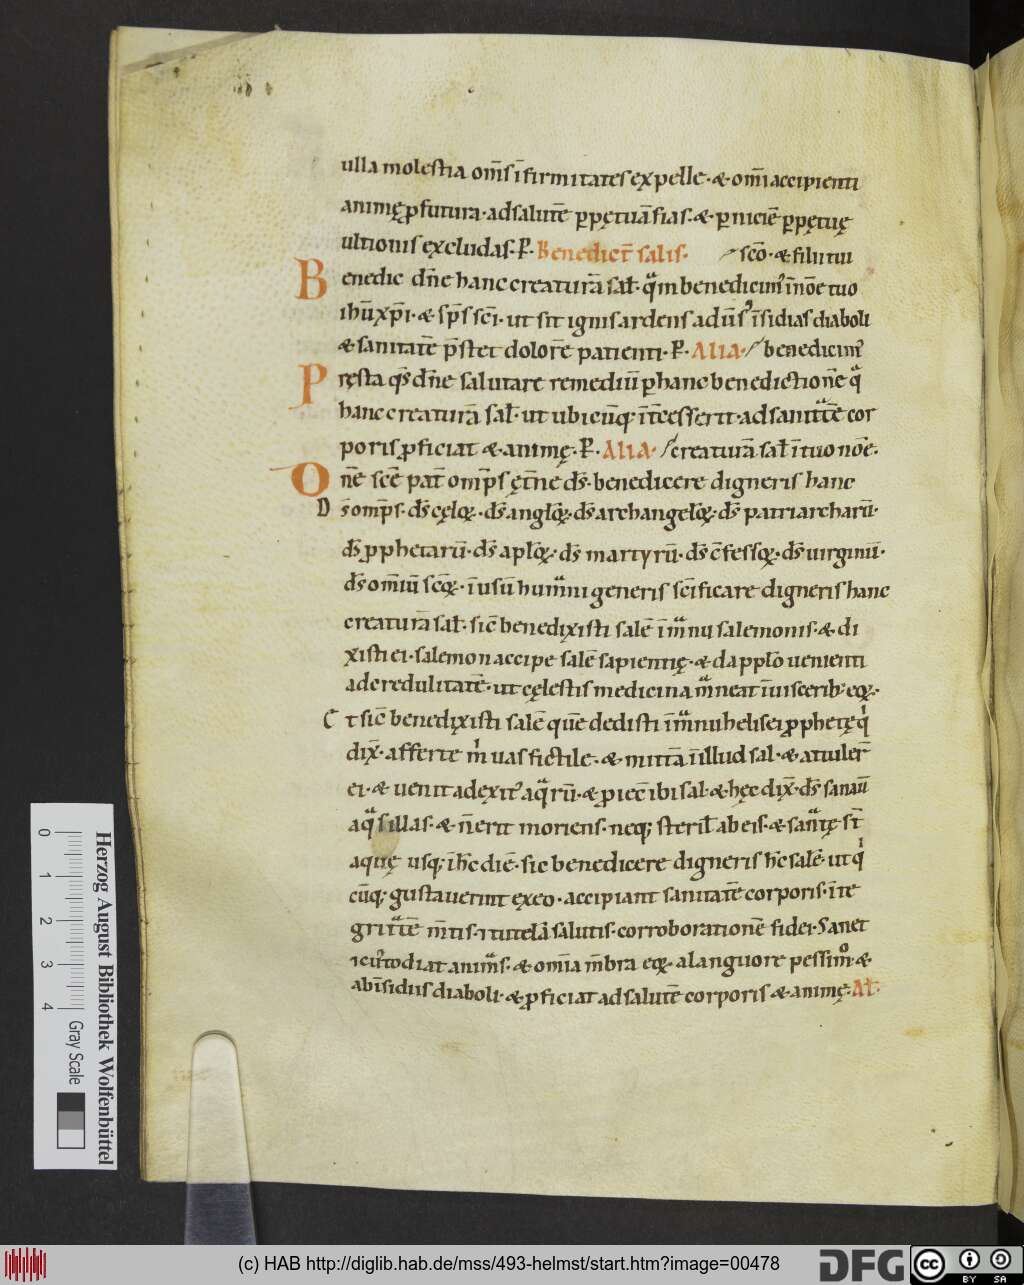 ulla molestia om̄s ī firmitates expelle · & om̄i accipienti
animę ꝓfutura · ad salutē ꝑpętuā fias · & ꝑniciē ꝑpętuę
ultionis excludas · P̄ · Benedict̄ salis · sc̄o · & filii tui
Benedic dn̄e hanc creaturā sal̄ · qͣm benedicimꝰ in nōe tuo
ihū xp̄i · & sp̄s sc̄i · ut sit ignis ardens aduꝰ īsidias diaboli
& sanitatē p̄stet dolorē patienti · P̄ · Alia · benedicimꝰ
Pręsta qs̄ dn̄e salutare remediū ꝑ hanc benedictionē qͣ
hanc creaturā sal̄ · ut ubicūq; īt̄cesserit · ad sanitͣtē cor
poris ꝓficiat & animę · P̄ · Alia · creaturā sal̄ ī tuo nōe ·
Dn̄e sc̄e pat̄ omp̄s ęt̄ne ds̄ · benedicere digneris hanc
Ds̄ omp̄s · ds̄ cęloꝝ · ds̄ angloꝝ · ds̄ archangeloꝝ · ds̄ patriarcharū ·
ds̄ ꝓphetarū · ds̄ aploꝝ · ds̄ martyrū · ds̄ c̄fessoꝝ · ds̄ uirginū ·
ds̄ om̄iū sc̄oꝝ · ī usū humͣni generis sc̄ificare digneris hanc
creaturā sal̄ · sic̄ benedixisti salē ī mͣnu salemonis · & di
xisti ei · salemon accipe salē sapientię · & da pplo uenienti
ad credulitatē · ut cęlestis medicina mͣneat ī uiscerib; eoꝝ ·
Et sic̄ benedixisti salē quē dedisti ī mͣnu helisei ꝓphetę qͥ
dix̄ · afferte mͥ uas fictile · & mittā ī illud sal · & attuler̄
ei · & uenit ad exitꝰ aqͣrū · & ꝓiec̄ ibi sal · & hęc dix̄ · ds̄ sanaū
aqͣs illas · & n̄ erit moriens · neq; steril̄ ab eis · & sanͣtę st̄
aquę usq; ī hc̄ diē · sic benedicere digneris hc̄ salē · ut qͥ
cūq; gustauerint ex eo · accipiant sanitatē corporis · īte
gritͣtē m̄tis · ⁊ tutelā salutis · corroborationē fidei · Sanet
⁊ custodiat animͣs · & om̄ia mb̄ra eoꝝ · a languore pessimͦ · &
ab īsidiis diaboli · & ꝓficiat ad salutē corporis & animę · Al̄ ·
0 1 2 3 4
Herzog August Bibliothek Wolfenbüttel
Gray Scale
(c) HAB http://diglib.hab.de/mss/493-helmst/start.htm?image=00478
DFG
cc BY SA